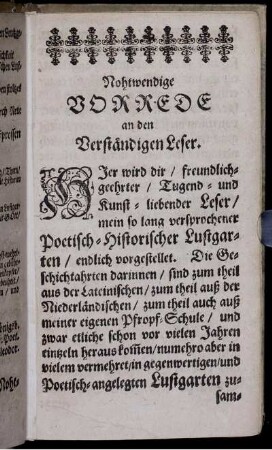 Nohtwendige
VORREDE
an den
Verständigen Leser.
HIer wird dir / freundlich-
geehrter / Tugend- und
Kunst- liebender Leser /
mein so lang versprochener
Poetisch-Historischer Lustgar-
ten / endlich vorgestellet. Die Ge-
schichtahrten darinnen / sind zum theil
aus der Lateinischen / zum theil auß der
Niederländischen / zum theil auch auß
meiner eigenen Pfropf-Schule / und
zwar etliche schon vor vielen Jahren
eintzeln heraus kom̃en / numehro aber in
vielem vermehret / in gegenwertigen / und
Poetisch-angelegten Lustgarten zu-
sam-